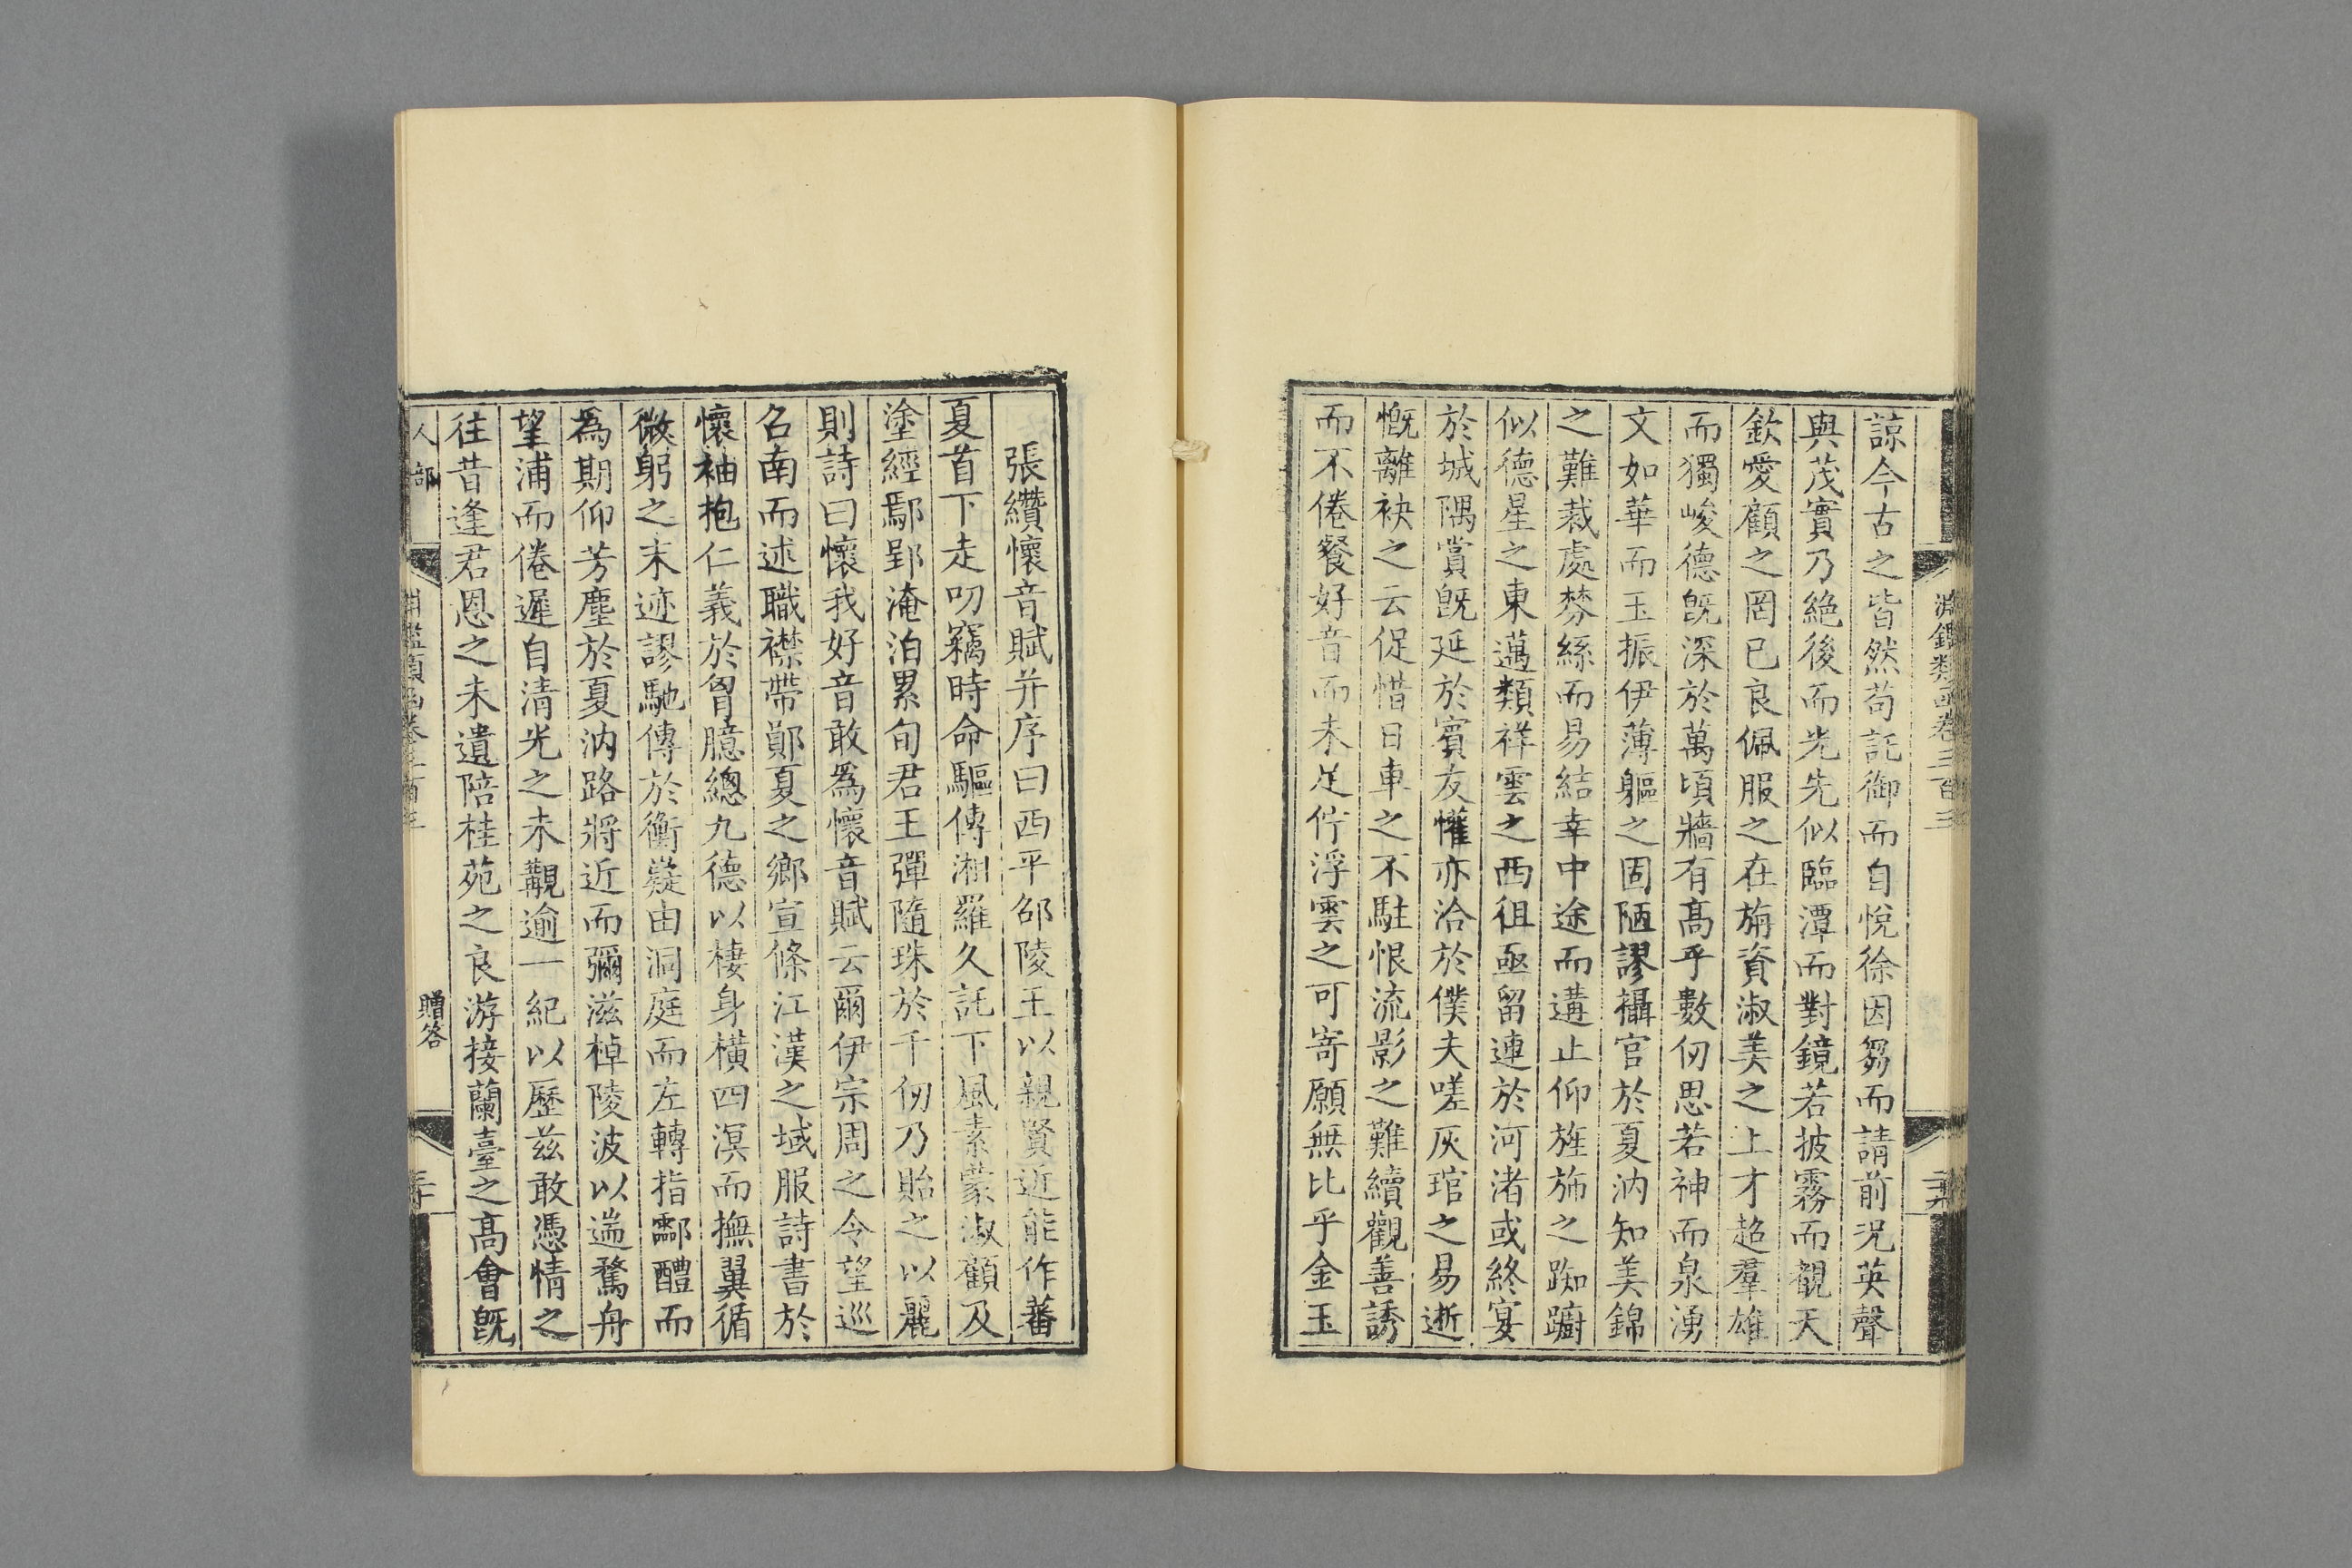 淵鑑類函卷三百三
諒今古之皆然苟託御而自悅徐因芻而請前况英聲
與茂實乃絕後而光先似臨潭而對鏡若披霧而覩天
欽愛顧之罔已良佩服之在旃資淑美之上才超羣雄
而獨峻德旣深於萬頃牆有髙乎數仞思若神而泉湧
文如華而玉振伊薄軀之固陋謬攝官於夏汭知美錦
之難裁處棼絲而易結幸中途而遘止仰旌斾之踟躕
似德星之東邁類祥雲之西徂亟留連於河渚或終宴
於城隅賞旣延於賓友懽亦洽於僕夫嗟灰琯之易逝
慨離袂之云促惜日車之不駐恨流影之難續觀善誘
而不倦餐好音而未足佇浮雲之可寄願無比乎金玉
張纘懷音賦并序曰西平邵陵王以親賢近能作蕃
夏首下走叨竊時命驅傳湘羅久託下風素蒙淑顧及
塗經鄢郢淹泊累旬君王彈隨珠於千仞乃貽之以麗
則詩曰懷我好音敢爲懷音賦云爾伊宗周之令望巡
召南而述職襟帶鄭夏之鄉宣條江漢之域服詩書於
懷袖抱仁義於胷臆總九德以棲身橫四溟而撫翼循
微躬之末迹謬馳傳於衡嶷由洞庭而左轉指酃醴而
爲期仰芳塵於夏汭路將近而彌滋棹陵波以遄騖舟
望浦而倦遲自清光之未覯逾一紀以歷兹敢憑情之
往昔逢君恩之未遺陪桂苑之良游接蘭臺之髙會旣
人部
贈答